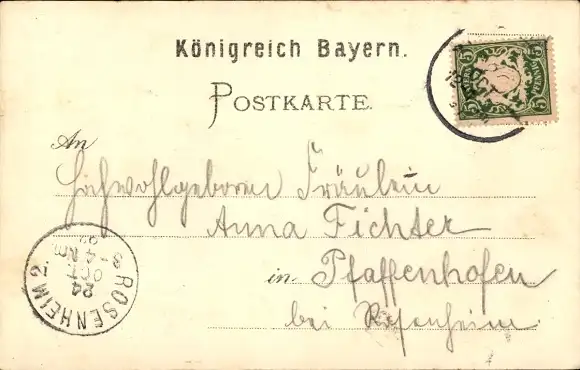 Königreich Bayern.
POSTKARTE.
An
Hochwohlgeboren Fräulein
Anna Fichter
in Pfaffenhofen
bei Rosenheim
5 BAYERN PFENNIG 5
OCT
ROSENHEIM 2
24
OCT
3-4 Nm